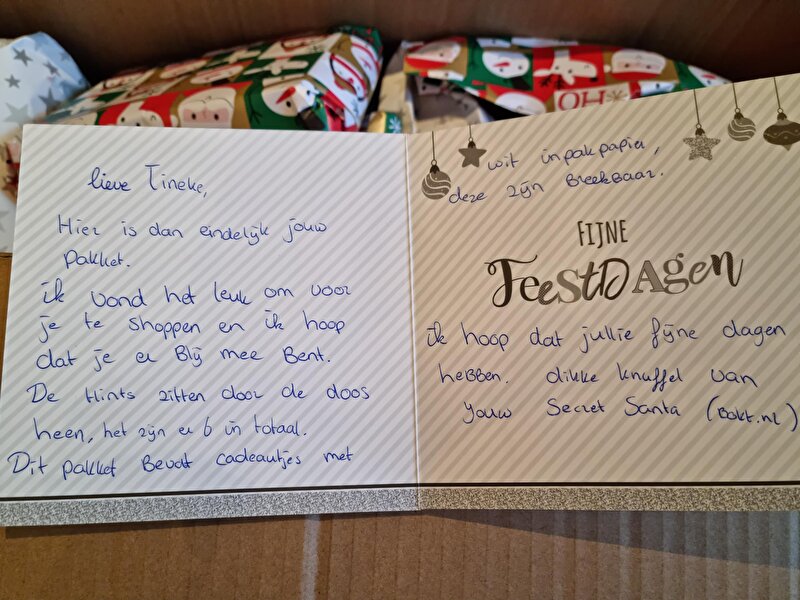 lieve Tineke,
Hier is dan eindelijk jouw
pakket.
ik vond het leuk om voor
je te shoppen en ik hoop
dat je er Blij mee Bent.
De Hints zitten door de doos
heen, het zijn er 6 in totaal.
Dit pakket Bevat cadeautjes met
wit inpakpapier,
deze zijn Breekbaar.
FIJNE
FEESTDAGEN
ik hoop dat jullie fijne dagen
hebben. dikke knuffel van
jouw Secret Santa (Bokt.nl)
OH